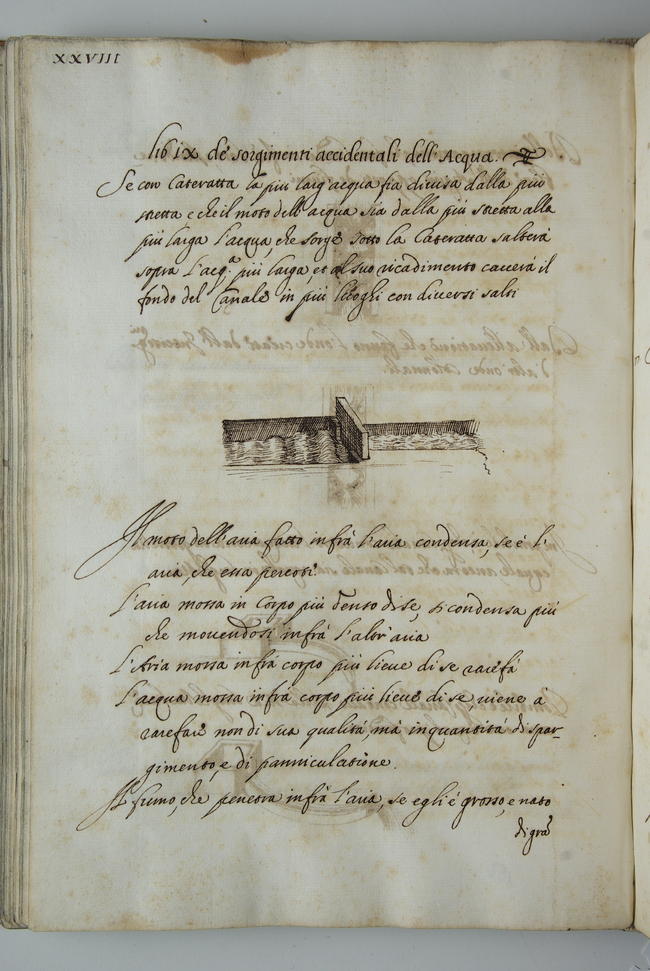 XXVIII
lib IX de' sorgimenti accidentali dell'Acqua.
Se con Cateratta la più larg'acqua fia divisa dalla più
stretta e che il moto dell'acqua sia dalla più stretta alla
più larga l'acqua, che sorge sotto la Cateratta salterà
sopra l'acq.a più larga, et al suo ricadimento caverà il
fondo del Canale in più luoghi con diversi salti
Il moto dell'aria fatto infrà l'aria condensa, se è l'
aria, che essa percosse
L'aria mossa in Corpo più denso di se, si condensa più
che movendosi infrà l'altr'aria
L'Aria mossa infrà corpo più lieve di se rarefà
L'acqua mossa infrà corpo più lieve di se, viene à
rarefare non di sua qualità, mà in quantità di spar-
gimento, e di panniculatione.
Il fumo, che penetra infrà l'aria, se egli è grosso, e nato
di gra